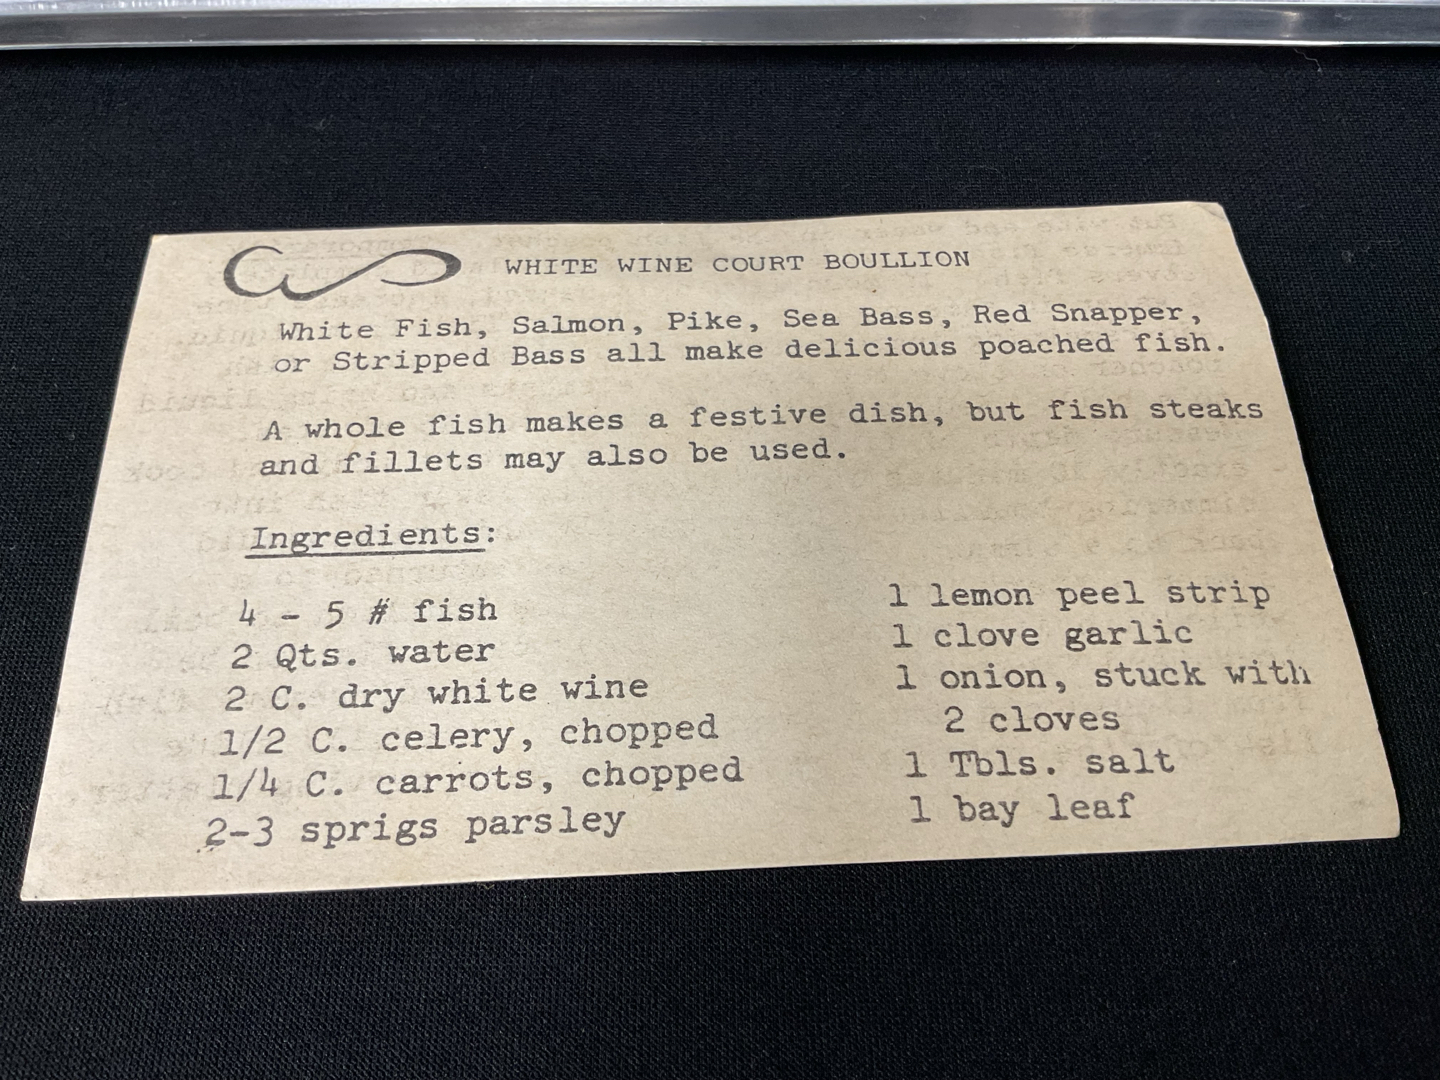 WHITE WINE COURT BOULLION
White Fish, Salmon, Pike, Sea Bass, Red Snapper,
or Stripped Bass all make delicious poached fish.
A whole fish makes a festive dish, but fish steaks
and fillets may also be used.
Ingredients:
4 - 5 # fish
2 Qts. water
2 C. dry white wine
1/2 C. celery, chopped
1/4 C. carrots, chopped
2-3 sprigs parsley
1 lemon peel strip
1 clove garlic
1 onion, stuck with
2 cloves
1 Tbls. salt
1 bay leaf